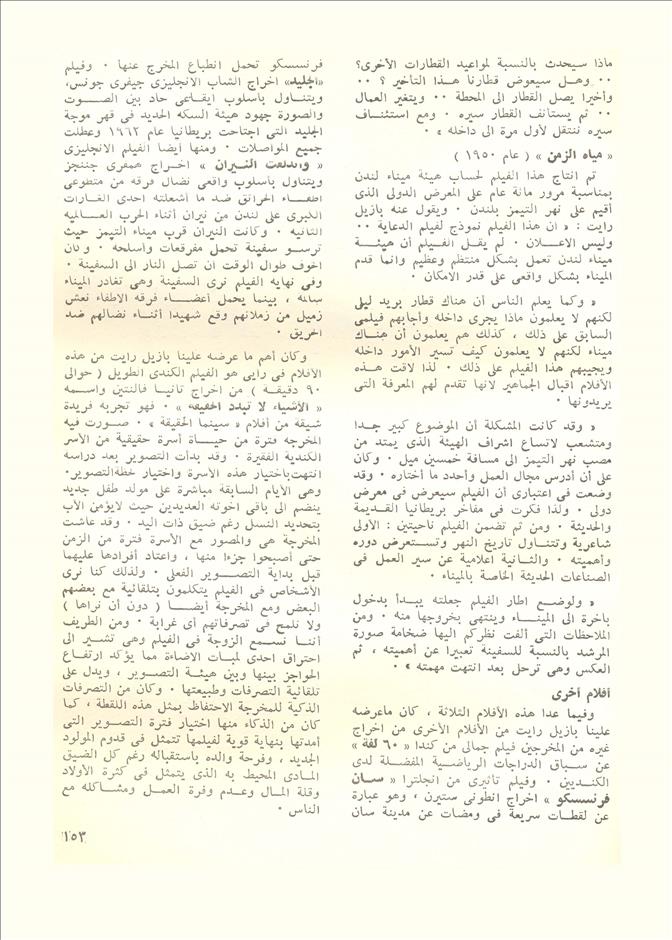 ماذا سيحدث بالنسبة لمواعيد القطارات الأخرى؟
٠٠ وهل سيعوض قطارنا هذا التأخير ؟ ٠٠
وأخيرا يصل القطار الى المحطة ٠٠ ويتغير العمال
٠٠ ثم يستأنف القطار سيره ٠ ومع استئناف
سيره ننتقل لأول مرة الى داخله » ٠
« مياه الزمن » ( عام ١٩٥٠ )
تم انتاج هذا الفيلم لحساب هيئة ميناء لندن
بمناسبة مرور مائة عام على المعرض الدولى الذى
أقيم على نهر التيمز بلندن ٠ ويقول عنه بازيل
رايت : « ان هذا الفيلم نموذج لفيلم الدعاية ٠٠
وليس الاعلان ٠ لم يقل الفيلم أن هيئة
ميناء لندن تعمل بشكل منتظم وعظيم وانما قدم
الميناء بشكل واقعى على قدر الامكان ٠
« وكما يعلم الناس أن هناك قطار بريد ليلى
لكنهم لا يعلمون ماذا يجرى داخله وأجابهم فيلمى
السابق على ذلك ، كذلك هم يعلمون أن هناك
ميناء لكنهم لا يعلمون كيف تسير الأمور داخله
ويجيبهم هذا الفيلم على ذلك ٠ لذا لاقت هذه
الأفلام اقبال الجماهير لأنها تقدم لهم المعرفة التى
يريدونها ٠
« وقد كانت المشكلة أن الموضوع كبير جدا
ومتشعب لاتساع اشراف الهيئة الذى يمتد من
مصب نهر التيمز الى مسافة خمسين ميل ٠ وكان
على أن أدرس مجال العمل وأحدد ما أختاره ٠ وقد
وضعت فى اعتبارى أن الفيلم سيعرض فى معرض
دولى ٠ ولذا فكرت فى مفاخر بريطانيا القديمة
والحديثة ٠ ومن ثم تضمن الفيلم ناحيتين : الأولى
شاعرية وتتناول تاريخ النهر وتستعرض دوره
وأهميته ٠ والثانية اعلامية عن سير العمل فى
الصناعات الحديثة الخاصة بالميناء ٠
« ولوضع اطار الفيلم جعلته يبدأ بدخول
باخرة الى الميناء وينتهى بخروجها منه ٠ ومن
الملاحظات التى ألفت نظركم اليها ضخامة صورة
المرشد بالنسبة للسفينة تعبيرا عن أهميته ، ثم
العكس وهى ترحل بعد انتهت مهمته » ٠
أفلام أخرى
وفيما عدا هذه الأفلام الثلاثة ، كان ماعرضه
علينا بازيل رايت من الأفلام الأخرى من اخراج
غيره من المخرجين فيلم جمالى من كندا « ٦٠ لفة »
عن سباق الدراجات الرياضية المفضلة لدى
الكنديين ٠ وفيلم تأثيرى من انجلترا « سان
فرنسسكو » اخراج انطونى ستيرن ، وهو عبارة
عن لقطات سريعة فى ومضات عن مدينة سان
فرنسسكو تحمل انطباع المخرج عنها ٠ وفيلم
«الجليد» اخراج الشاب الانجليزى جيفرى جونس،
ويتناول بأسلوب ايقاعى حاد بين الصوت
والصورة جهود هيئة السكة الحديد فى قهر موجة
الجليد التى اجتاحت بريطانيا عام ١٩٦٢ وعطلت
جميع المواصلات ٠ ومنها أيضا الفيلم الانجليزى
« واندلعت النيران » اخراج همفرى جننجز
ويتناول بأسلوب واقعى نضال فرقة من متطوعى
اطفاء الحرائق ضد ما أشعلته احدى الغارات
الكبرى على لندن من نيران أثناء الحرب العالمية
الثانية ٠ وكانت النيران قرب ميناء التيمز حيث
ترسو سفينة تحمل مفرقعات وأسلحة ٠ وكان
الخوف طوال الوقت أن تصل النار الى السفينة ٠
وفى نهاية الفيلم نرى السفينة وهى تغادر الميناء
سالمة ، بينما يحمل أعضاء فرقة الاطفاء نعش
زميل من زملائهم وقع شهيدا أثناء نضالهم ضد
الحريق ٠
وكان أهم ما عرضه علينا بازيل رايت من هذه
الأفلام فى رأيى هو الفيلم الكندى الطويل ( حوالى
٩٠ دقيقة ) من اخراج تانيا فالنتين واسمه
« الأشياء لا تبدد الحقيقة » ٠ فهو تجربة فريدة
شيقة من أفلام « سينما الحقيقة » ٠ صورت فيه
المخرجة فترة من حياة أسرة حقيقية من الأسر
الكندية الفقيرة ٠ وقد بدأت التصوير بعد دراسة
انتهت باختيار هذه الأسرة واختيار خطة التصوير٠
وهى الأيام السابقة مباشرة على مولد طفل جديد
ينضم الى باقى اخوته العديدين حيث لايؤمن الأب
بتحديد النسل رغم ضيق ذات اليد ٠ وقد عاشت
المخرجة هى والمصور مع الأسرة فترة من الزمن
حتى أصبحوا جزءا منها ، واعتاد أفرادها عليهما
قبل بداية التصوير الفعلى ٠ ولذلك كنا نرى
الأشخاص فى الفيلم يتكلمون بتلقائية مع بعضهم
البعض ومع المخرجة أيضا ( دون أن نراها )
ولا نلمح فى تصرفاتهم أى غرابة ٠ ومن الطريف
أننا نسمع الزوجة فى الفيلم وهى تشير الى
احتراق احدى لمبات الاضاءة مما يؤكد ارتفاع
الحواجز بينها وبين هيئة التصوير ، ويدل على
تلقائية التصرفات وطبيعتها ٠ وكان من التصرفات
الذكية للمخرجة الاحتفاظ بمثل هذه اللقطة ، كما
كان من الذكاء منها اختيار فترة التصوير التى
أمدتها بنهاية قوية لفيلمها تتمثل فى قدوم المولود
الجديد ، وفرحة والده باستقباله رغم كل الضيق
المادى المحيط به الذى يتمثل فى كثرة الأولاد
وقلة المال وعدم وفرة العمل ومشاكله مع
الناس ٠
١٥٣